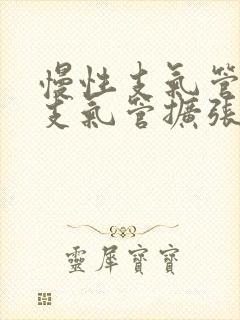 慢性支氣管
支氣管擴張
靈犀寶寶